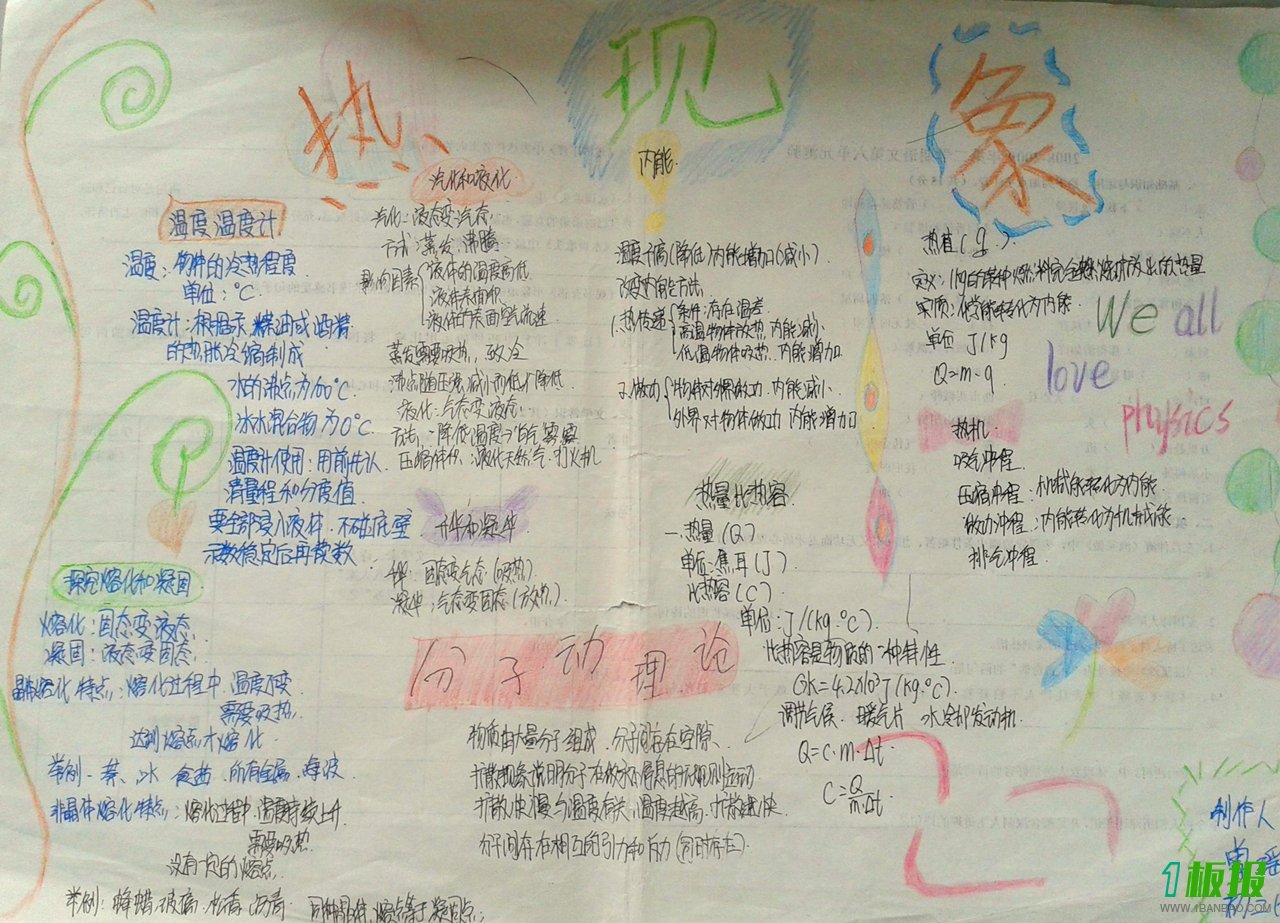 热现象
温度 温度计
温度：物体的冷热程度
单位：°C
温度计：根据 煤油或酒精
的热胀冷缩制成
水的沸点为100°C
冰水混合物为0°C
温度计使用：用前先认
清量程和分度值
要全部浸入液体 不碰底壁
示数稳定后再读数
探究熔化和凝固
熔化：固态变液态
凝固：液态变固态
晶体熔化特点：熔化过程中 温度不变
需要吸热
达到熔点才熔化
举例 萘、冰 食盐 所有金属
非晶体熔化特点：熔化过程中 温度持续上升
需要吸热
没有一定的熔点
举例：蜂蜡 玻璃 松香 沥青
同种晶体 熔点等于凝固点
汽化和液化
汽化：液态变汽态
方式：蒸发 沸腾
影响因素
液体的温度高低
液体表面积
液体的表面空气流速
蒸发需要吸热 致冷
沸点随压强减小而降低
液化：气态变液态
方法：降低温度 雾 露
压缩体积：液化天然气 打火机
升华和凝华
升华：固态变气态（吸热）
凝华：气态变固态（放热）
内能
温度升高（降低）内能增加（减小）
改变内能方法
1.热传递
条件：存在温差
高温物体放热 内能减小
低温物体吸热 内能增加
2.做功
物体对外界做功 内能减小
外界对物体做功 内能增加
热量比热容
热量（Q）
单位：焦耳（J）
比热容（C）
单位：J/(kg·°C)
比热容是物质的一种特性
=4.2x10³J/(kg·°C)
调节气候 暖气片 水冷却发动机
Q=c·m·Δt
C=Q/m·Δt
分子动理论
物质由大量分子组成 分子间存在空隙
扩散现象说明分子在做永不停息的无规则运动
扩散快慢与温度有关 温度越高 扩散越快
分子间存在相互的引力和斥力（同时存在）
热值（q）
定义：1kg的某种燃料完全燃烧放出的热量
实质：化学能转化为内能
单位 J/kg
Q=m·q
We all
love
physics
热机
吸气冲程
压缩冲程：机械能转化为内能
做功冲程：内能转化为机械能
排气冲程
制作人
1板报
WWW.1BANBAO.COM